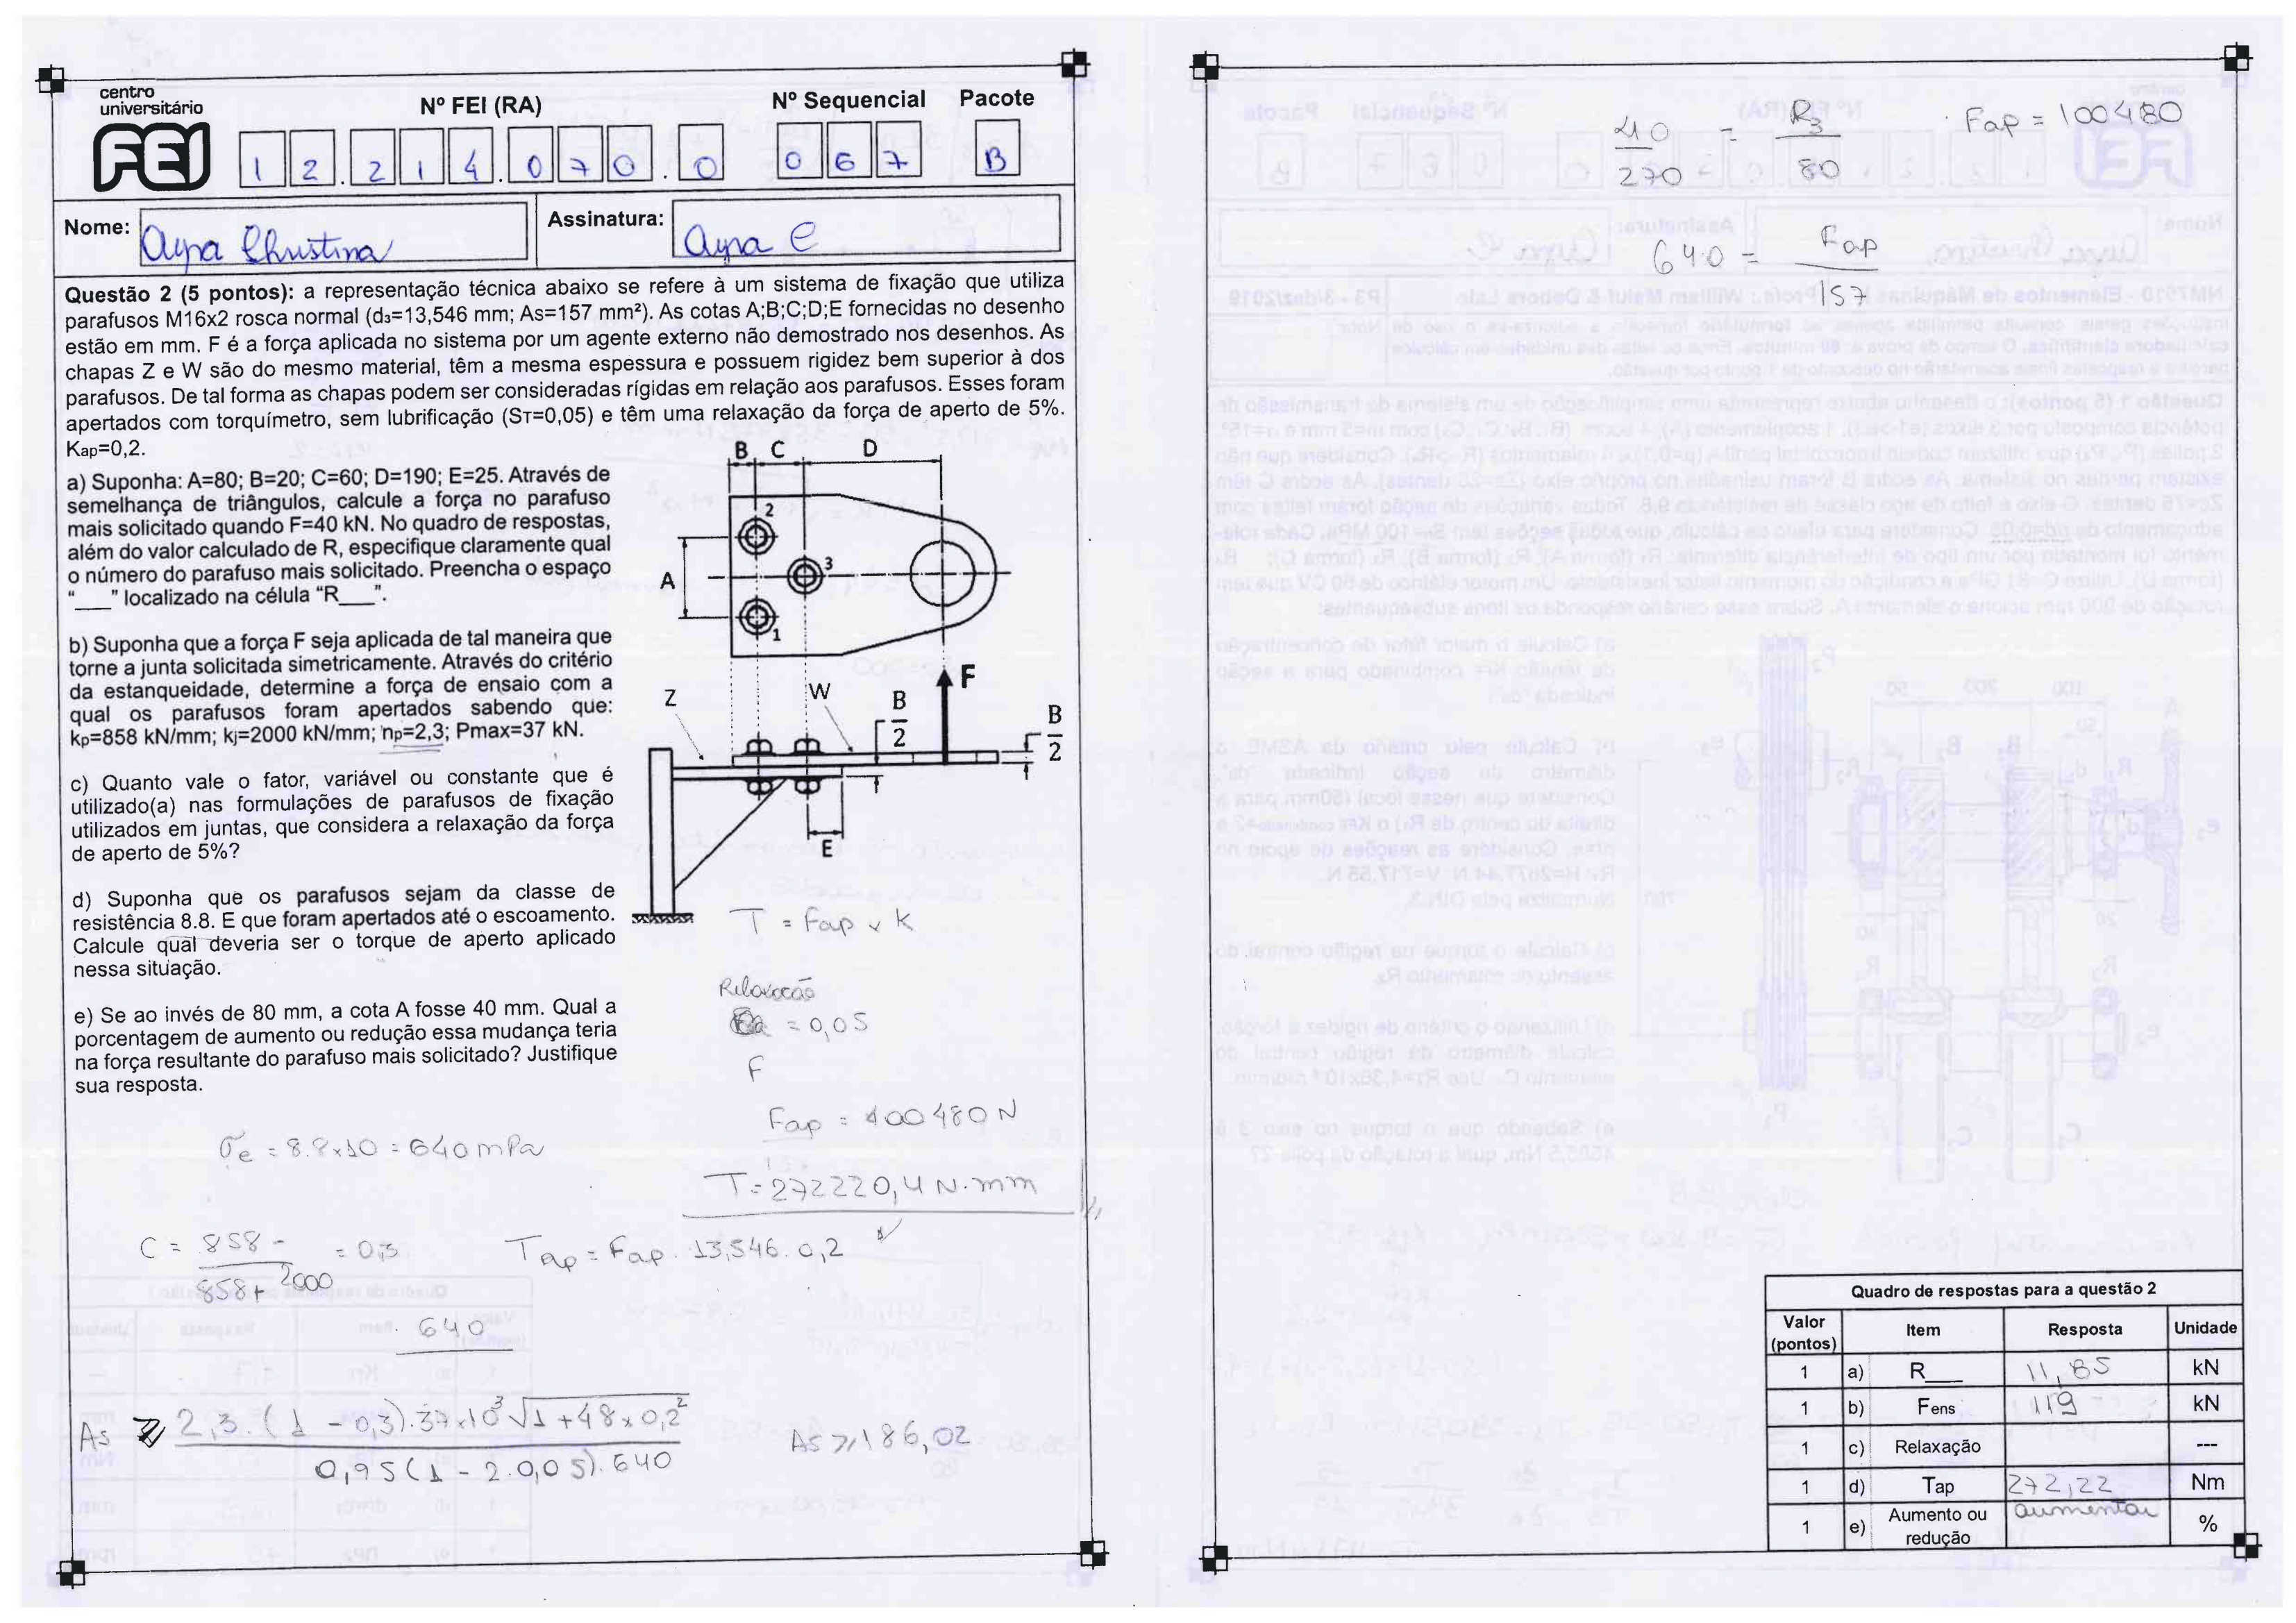 centro
universitário
FEI
Nº FEI (RA)
Nº Sequencial
Pacote
1 2 . 2 1 4 . 0 7 0 . 0
0 6 7
B
Nome:
Ayra Christina
Assinatura:
Ayra C
Questão 2 (5 pontos): a representação técnica abaixo se refere à um sistema de fixação que utiliza
parafusos M16x2 rosca normal (d₃=13,546 mm; As=157 mm²). As cotas A;B;C;D;E fornecidas no desenho
estão em mm. F é a força aplicada no sistema por um agente externo não demostrado nos desenhos. As
chapas Z e W são do mesmo material, têm a mesma espessura e possuem rigidez bem superior à dos
parafusos. De tal forma as chapas podem ser consideradas rígidas em relação aos parafusos. Esses foram
apertados com torquímetro, sem lubrificação (Sᴛ=0,05) e têm uma relaxação da força de aperto de 5%.
Kap=0,2.
a) Suponha: A=80; B=20; C=60; D=190; E=25. Através de
semelhança de triângulos, calcule a força no parafuso
mais solicitado quando F=40 kN. No quadro de respostas,
além do valor calculado de R, especifique claramente qual
o número do parafuso mais solicitado. Preencha o espaço
"___" localizado na célula "R___".
b) Suponha que a força F seja aplicada de tal maneira que
torne a junta solicitada simetricamente. Através do critério
da estanqueidade, determine a força de ensaio com a
qual os parafusos foram apertados sabendo que:
kp=858 kN/mm; kj=2000 kN/mm; np=2,3; Pmax=37 kN.
c) Quanto vale o fator, variável ou constante que é
utilizado(a) nas formulações de parafusos de fixação
utilizados em juntas, que considera a relaxação da força
de aperto de 5%?
d) Suponha que os parafusos sejam da classe de
resistência 8.8. E que foram apertados até o escoamento.
Calcule qual deveria ser o torque de aperto aplicado
nessa situação.
e) Se ao invés de 80 mm, a cota A fosse 40 mm. Qual a
porcentagem de aumento ou redução essa mudança teria
na força resultante do parafuso mais solicitado? Justifique
sua resposta.
B C D
2
3
A
1
Z
W
B
2
F
B
2
E
T = Fap x K
Relaxação
= 0,05
F
Fap = 100480 N
T = 272220,4 N.mm
σe = 8.8x10 = 640 mPa
C = 858
858+2000
= 0,3
Tap = Fap . 13,546 . 0,2
640
As ≥ 2,3.(1 - 0,3).37x10³√1 + 48x0,2²
0,95(1 - 2.0,05).640
As ≥ 186,02
40 = R3
270 80
Fap = 100480
640 = Fap
157
Quadro de respostas para a questão 2
Valor
(pontos)
Item
Resposta
Unidade
1 a) R___ 11,85 kN
1 b) Fens 119 kN
1 c) Relaxação ---
1 d) Tap 272,22 Nm
1 e) Aumento ou
redução
aumentar
%